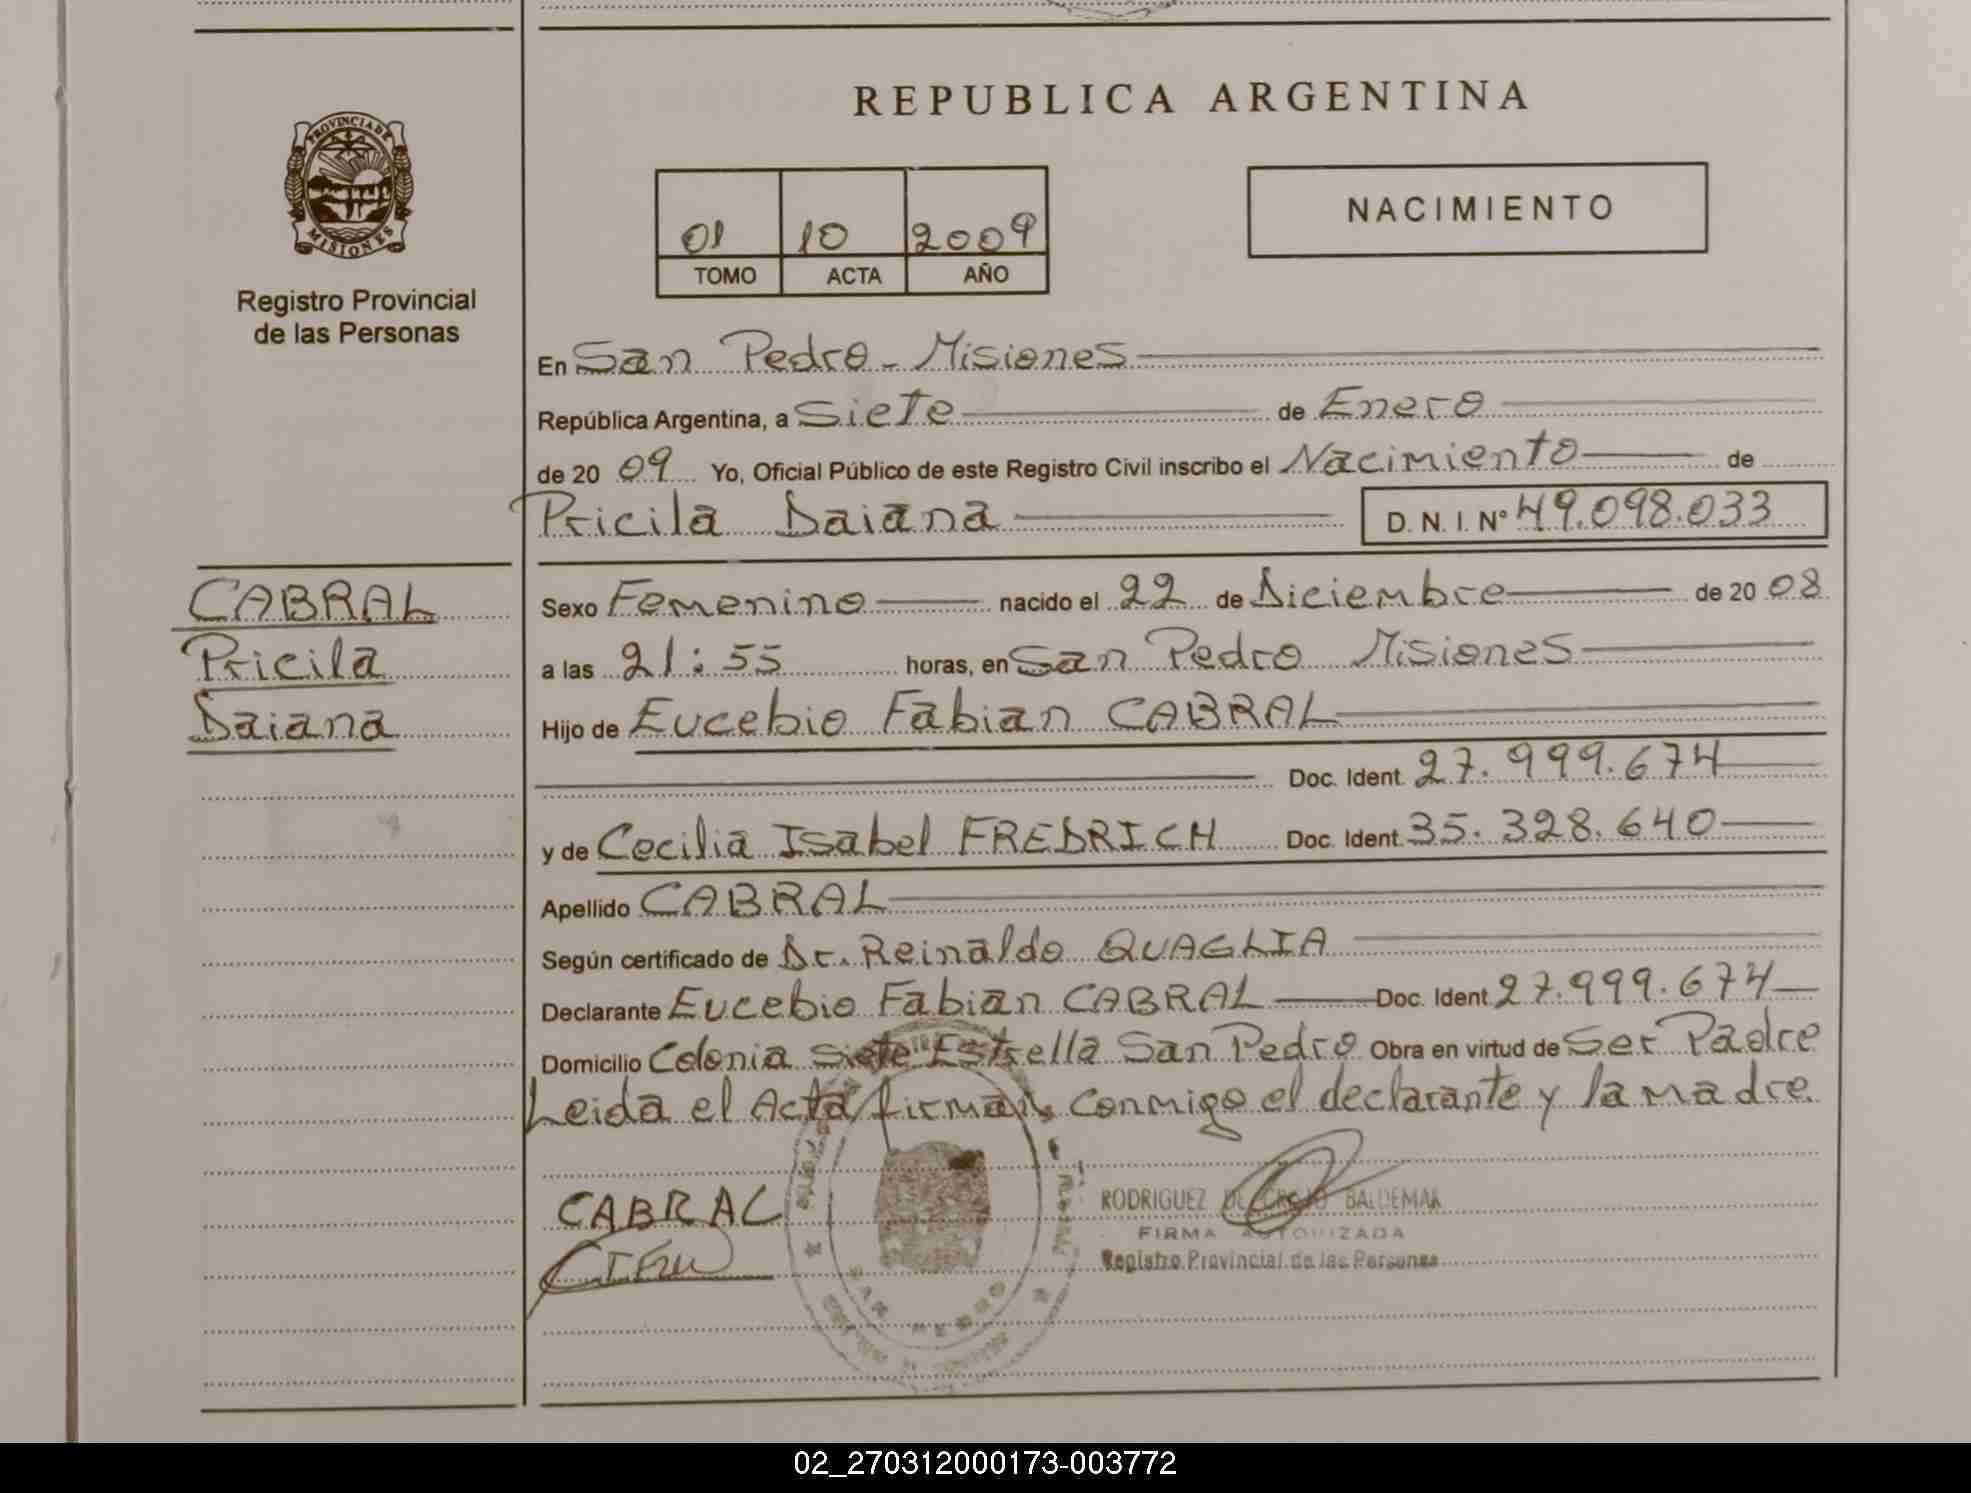 REPUBLICA ARGENTINA
PROVINCIA DE
MISIONES
Registro Provincial
de las Personas
01 10 2009
TOMO ACTA AÑO
NACIMIENTO
En San Pedro - Misiones
República Argentina, a Siete de Enero
de 20 09 Yo, Oficial Público de este Registro Civil inscribo el Nacimiento de
Pricila Daiana D. N. I. Nº 49.098.033
CABRAL
Pricila
Daiana
Sexo Femenino nacido el 22 de Diciembre de 20 08
a las 21:55 horas, en San Pedro Misiones
Hijo de Eucebio Fabian CABRAL
Doc. Ident. 27.999.674
y de Cecilia Isabel FREDRICH Doc. Ident. 35.328.640
Apellido CABRAL
Según certificado de Dr. Reinaldo QUAGLIA
Declarante Eucebio Fabian CABRAL Doc. Ident 27.999.674
Domicilio Colonia Siete Estrella San Pedro Obra en virtud de Ser Padre
Leida el Acta firman conmigo el declarante y la madre.
CABRAL
RODRIGUEZ BALDEMAR
FIRMA AUTORIZADA
Registro Provincial de las Personas
SAN PEDRO
02_270312000173-003772